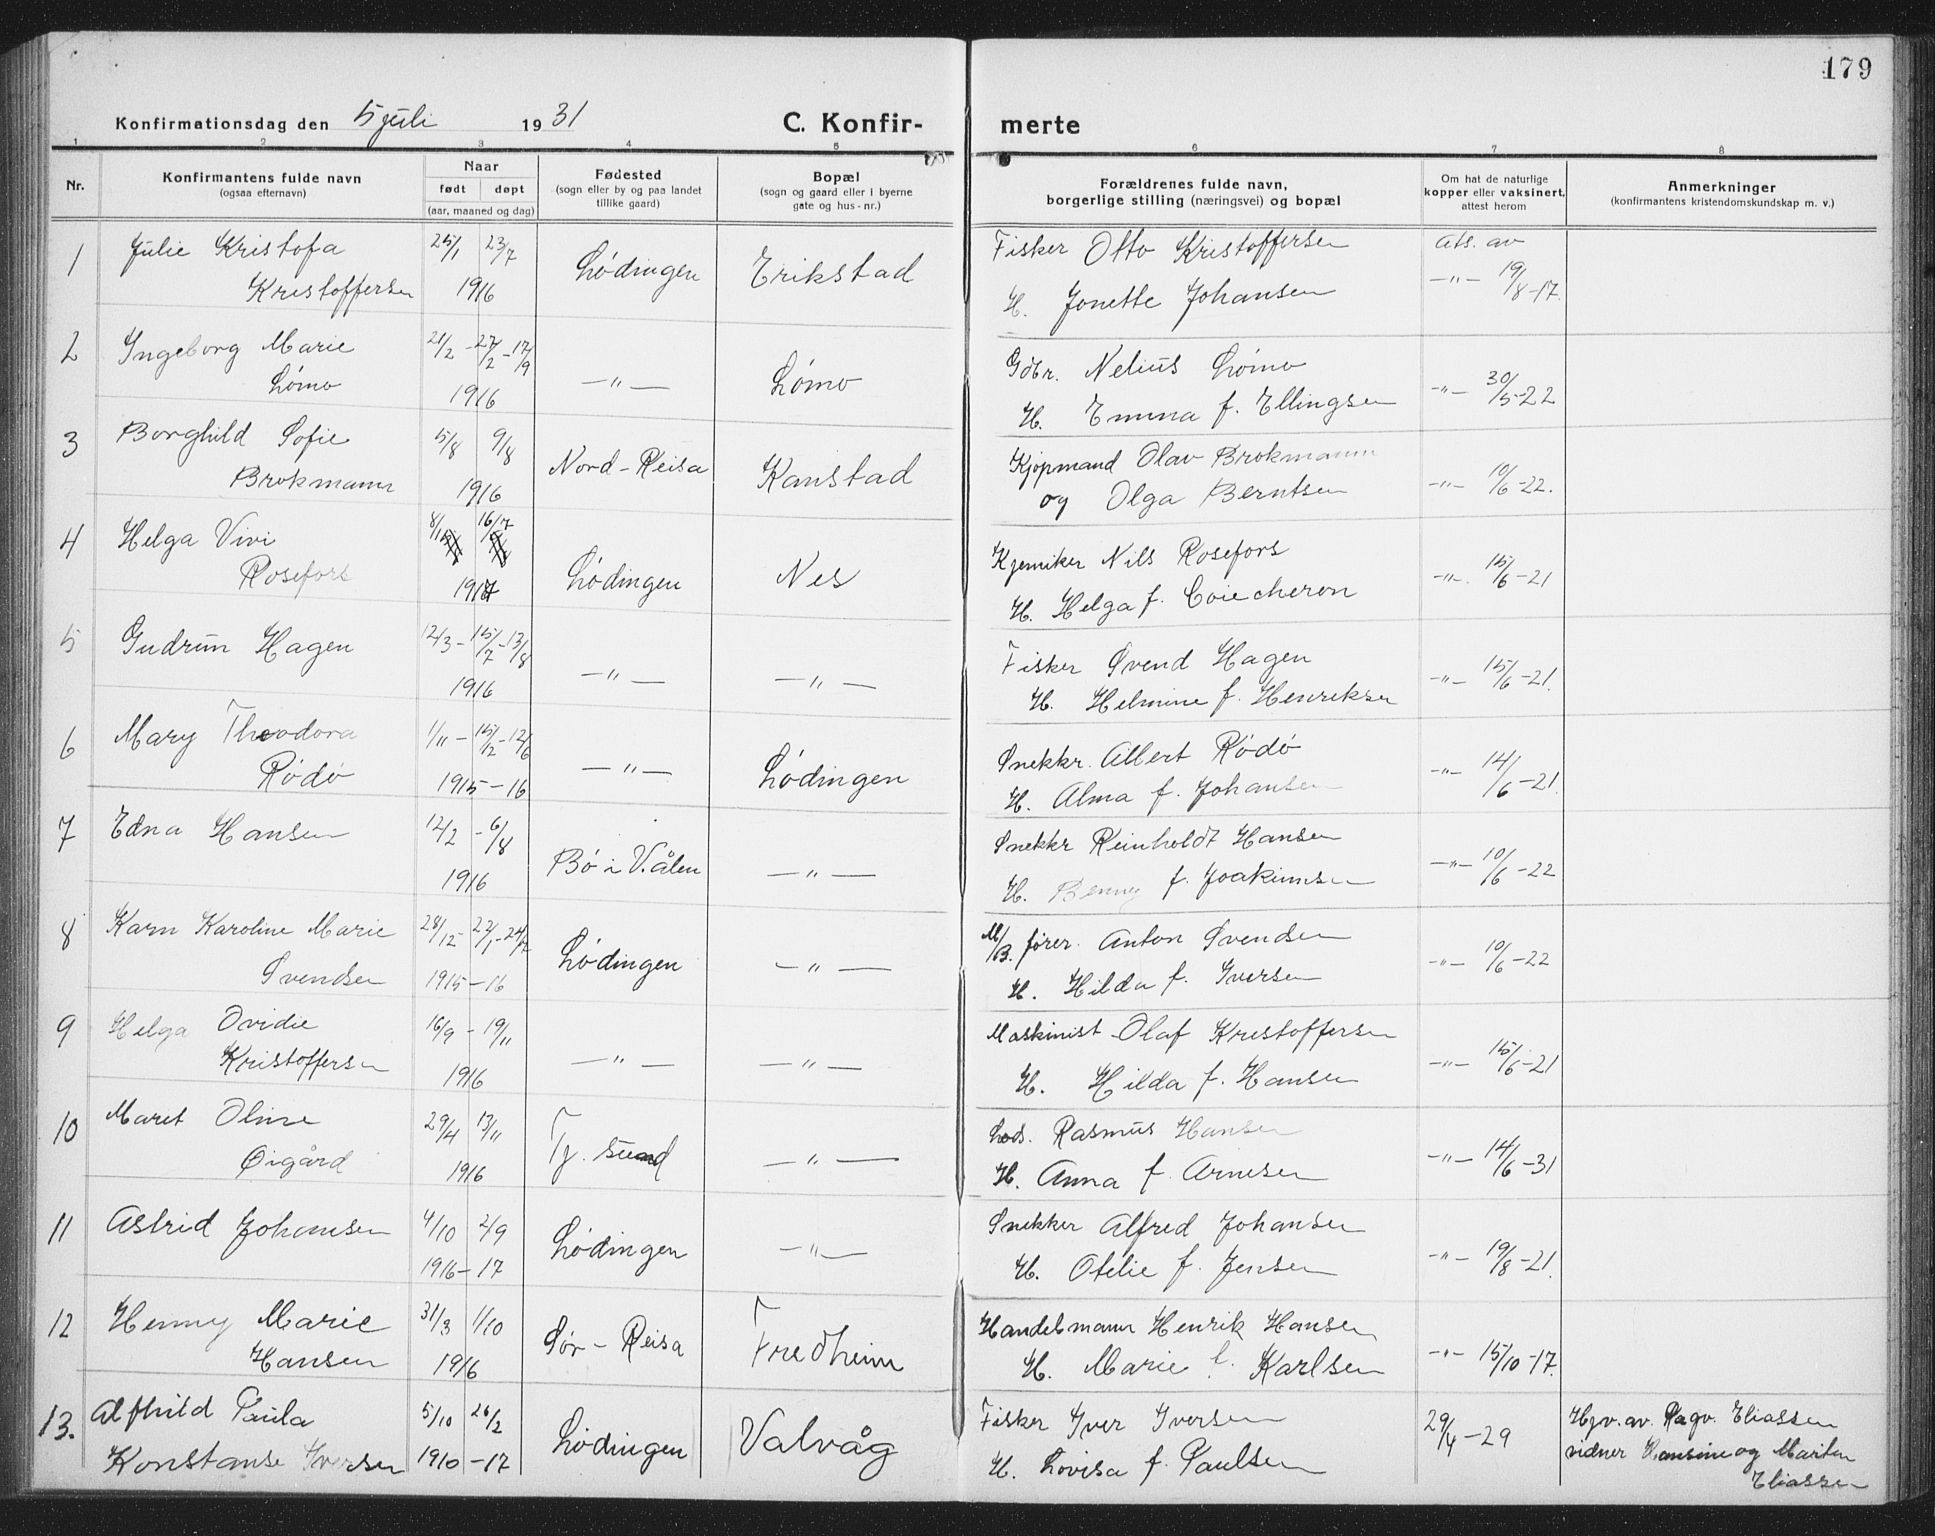 179
Konfirmationsdag den 5 juli 1931 C. Konfirmerte
1 2 3 4 5 6 7 8
Nr. Konfirmantens fulde navn (ogsaa efternavn) Naar født døpt (aar, maaned og dag) Fødested (sogn eller by og paa landet tillike gaard) Bopæl (sogn og gaard eller i byerne gate og hus-nr.) Forældrenes fulde navn, borgerlige stilling (næringsvei) og bopæl Om hat de naturlige kopper eller vaksinert, attest herom Anmerkninger (konfirmantens kristendomskundskap m. v.)
1 Julie Kristofa 25/1 23/7 Lødingen Erikstad Fisker Otto Kristoffersen ats. av
Kristoffersen 1916 H. Jonette Johansen -"- 19/8-17.
2 Ingeborg Marie 21/2 - 27/2 - 17/9 -"- Lømo Gdbr. Nelius Lømo
Lømo 1916 H. Emma f. Ellingsen -"- 30/5-22
3 Borghild Sofie 5/8 9/8 Nord-Reisa Kanstad Kjøpmand Olav Brokmann
Brokmann 1916 og Olga Berntsen -"- 10/6-22.
4 Helga Vivi 8/11 16/17 Lødingen Nes Kjemiker Nils Rosefors -"- 15/6-21
Rosefors H. Helga f.
5 Gudrun Hagen 12/3 - 15/7 - 13/8 -"- -"- Fisker Svend Hagen -"- 15/6-21.
1916 H. Helmine f. Henriksen
6 Mary Theodora 1/11 - 15/2 - 12/6 -"- Lødingen Snekkr. Albert Rødø -"- 14/6-21.
Rødø 1915-16 H. Alma f. Johansen
7 Edna Hansen 12/2 - 6/8 Bø i V.ålen -"- Snekkr Reinholdt Hansen -"- 10/6-22
1916 H. Benny f. Joakimsen
8 Karn Karoline Marie 28/12 - 22/1 - 24/12 Lødingen -"- M/B. fører. Anton Svendsen -"- 10/6-22
Svendsen 1915-16 H. Hilda f. Iversen
9 Helga Ovidie 16/9 - 19/11 -"- -"- Maskinist Olaf Kristoffersen -"- 15/6-21
Kristoffersen 1916 H. Hilda f. Hansen
10 Maret Oline 29/4 13/11 Tj. sund -"- Lods. Rasmus Hansen -"- 14/6-31
Øigård 1916 H. Anna f. Arnesen
11 Astrid Johansen 4/10 2/9 Lødingen -"- Snekker Alfred Johansen -"- 19/8-21.
1916-17 H. Otelie f. Jensen
12 Henny Marie 31/3 1/10 Sør-Reisa Fredheim Handelsmann Henrik Hansen -"- 15/10-17.
Hansen 1916 H. Marie f. Karlsen
13. Alfhild Paula 5/10 26/2 Lødingen Valvåg Fisker Iver Iversen 29/4-29 Hjv. av. Ragv. Eliassen
Konstanse Iversen 1910-17 H. Lovisa f. Paulsen vidner Hansine og Marten
Eliassen